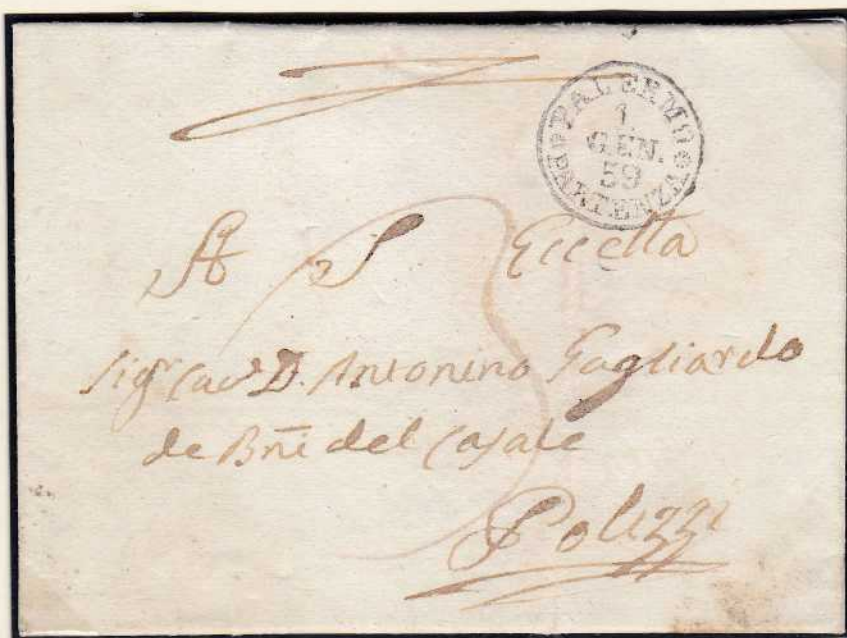 PALERMO
1
GEN.
59
PARTENZA
A S Eccellta
Sigr Cavr D. Antonino Gagliardo
de Bñi del Casale
Polizzi